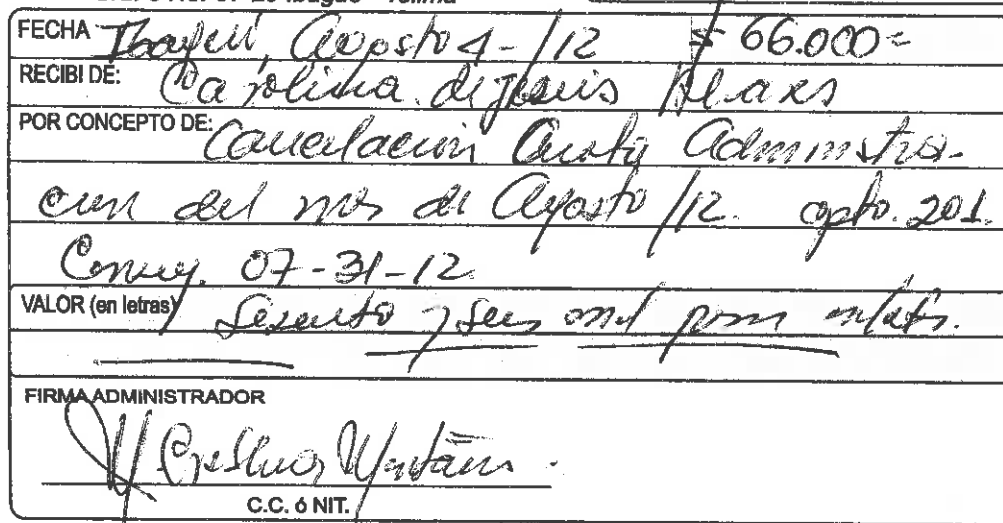 Ibagué - Tolima
FECHA Ibagué, Agosto 4-/12 $ 66.000=
RECIBI DE: Carolina de Jesus
POR CONCEPTO DE: Cancelacion Cuota Administra-
cion del mes de Agosto /12. apto. 201.
Consig. 07-31-12
VALOR (en letras) Sesenta y seis mil pesos m/cte.
FIRMA ADMINISTRADOR
C.C. ó NIT.